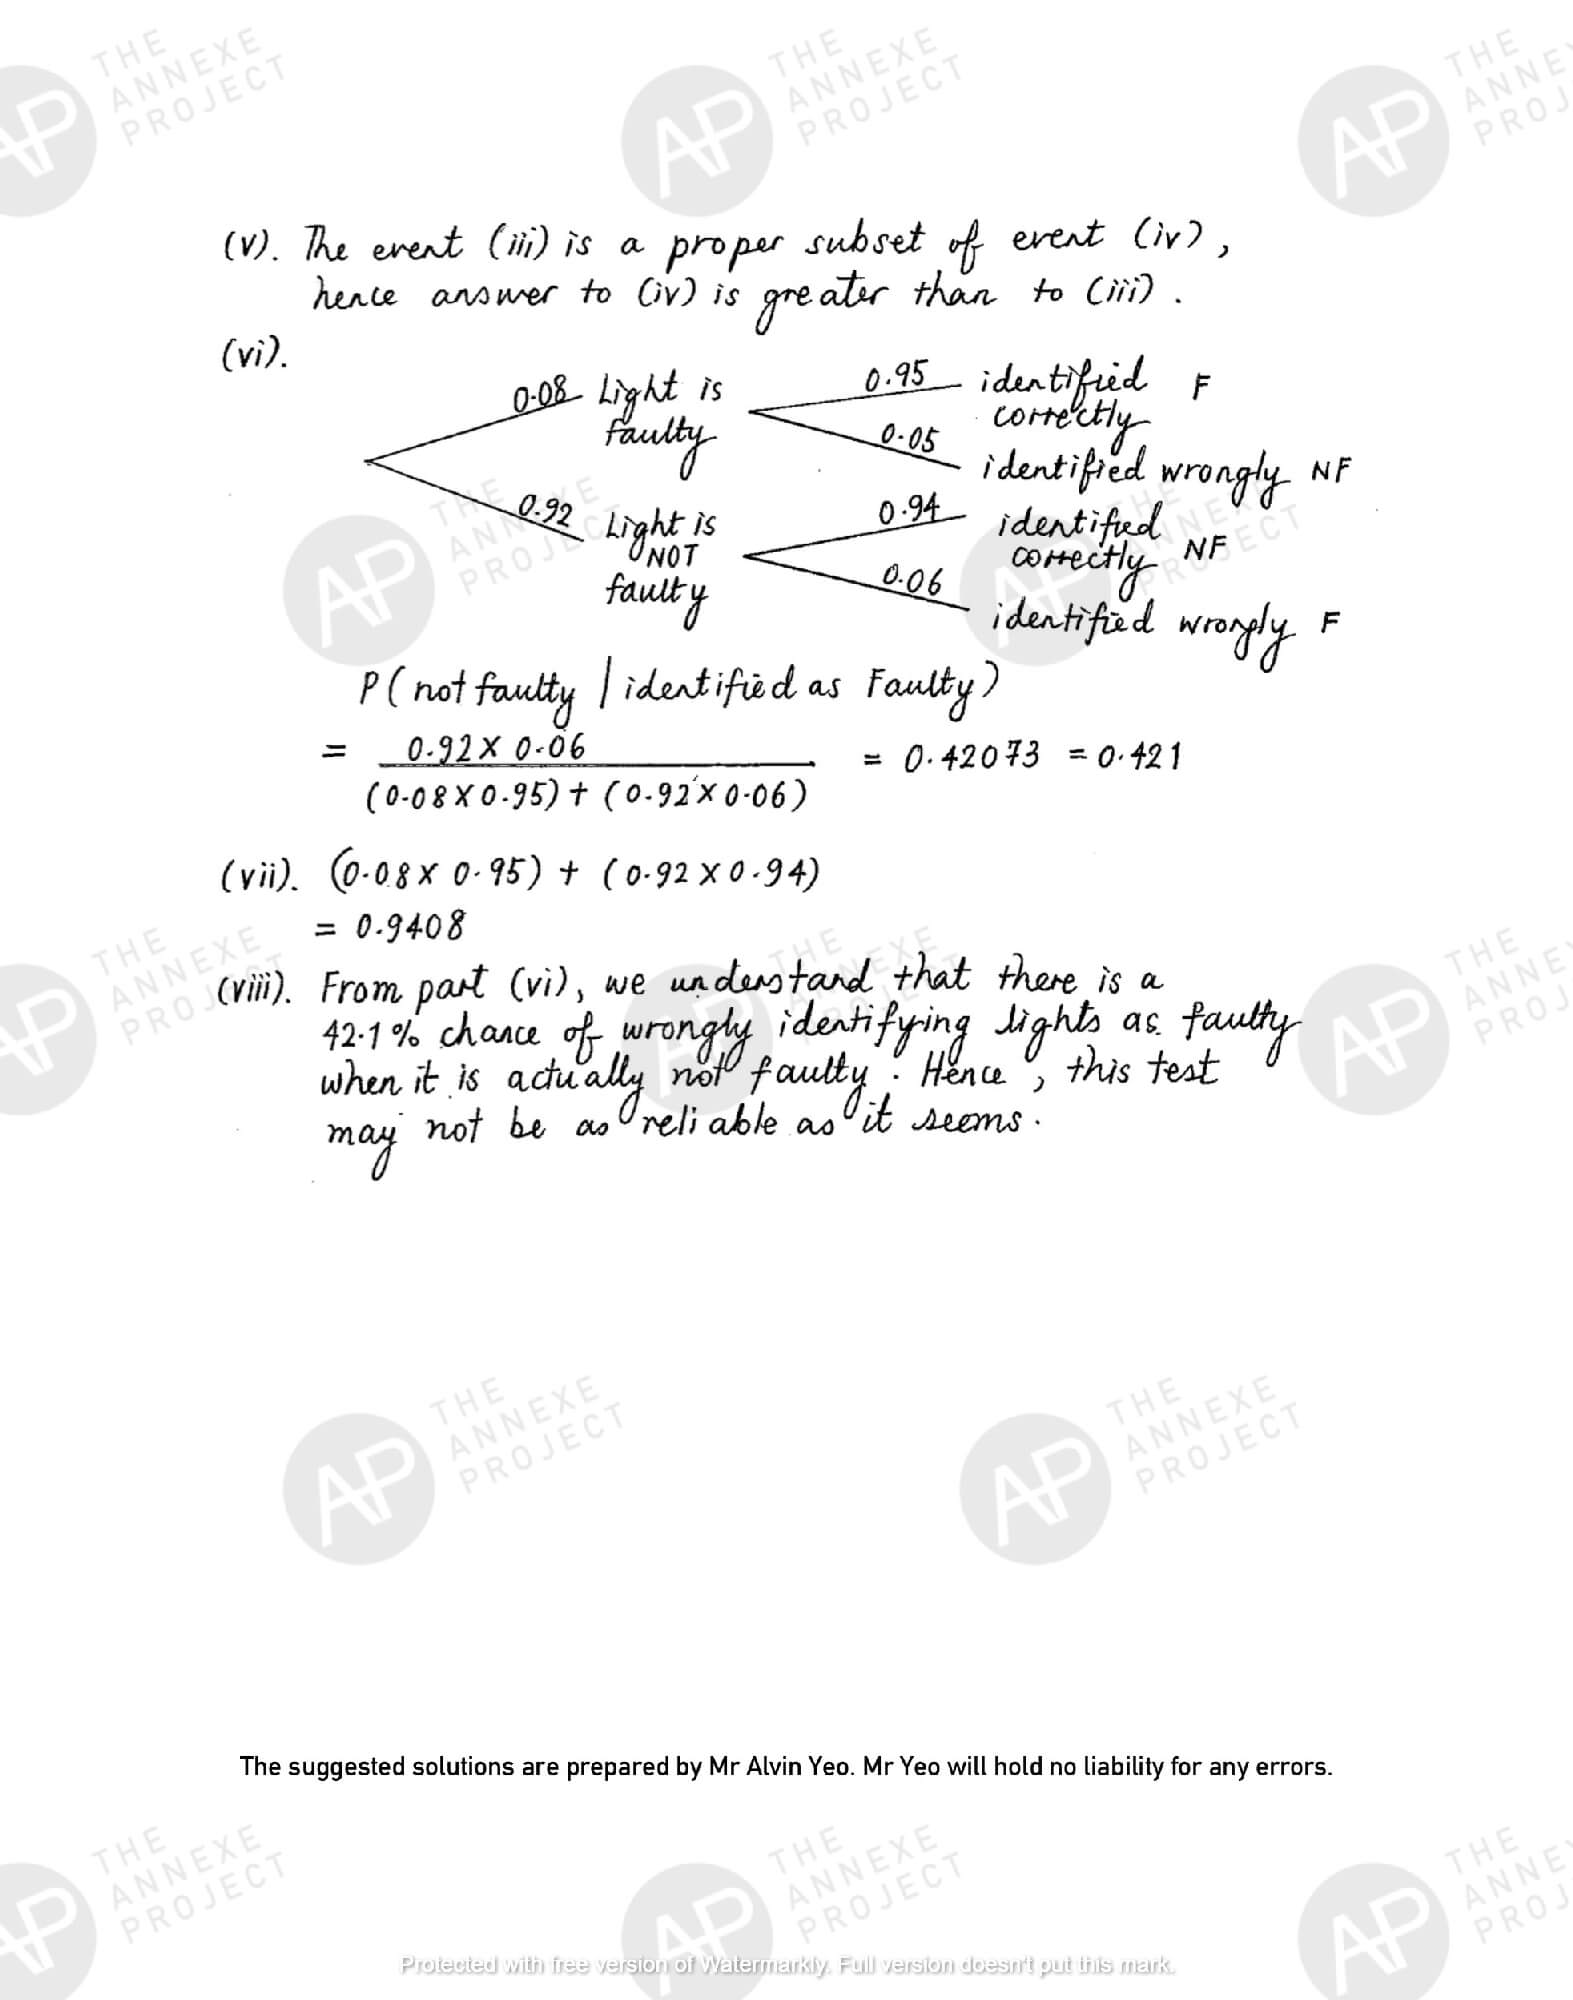 THE ANNEXE PROJECT
THE ANNEXE PROJECT
THE ANNE PROJ
(v). The event (iii) is a proper subset of event (iv),
hence answer to (iv) is greater than to (iii).
(vi).
0.08 Light is faulty
0.95 identified correctly F
0.05 identified wrongly NF
0.92 Light is NOT faulty
0.94 identified correctly NF
0.06 identified wrongly F
P(not faulty | identified as Faulty)
= 0.92 X 0.06 / (0.08 X 0.95) + (0.92 X 0.06) = 0.42073 = 0.421
(vii). (0.08 X 0.95) + (0.92 X 0.94)
= 0.9408
(viii). From part (vi), we understand that there is a
42.1% chance of wrongly identifying lights as faulty
when it is actually not faulty. Hence, this test
may not be as reliable as it seems.
THE ANNEXE PROJECT
THE ANNEXE PROJECT
The suggested solutions are prepared by Mr Alvin Yeo. Mr Yeo will hold no liability for any errors.
THE ANNEXE PROJECT
THE ANNEXE PROJECT
THE ANNE PROJ
Protected with free version of Watermarkly. Full version doesn't put this mark.